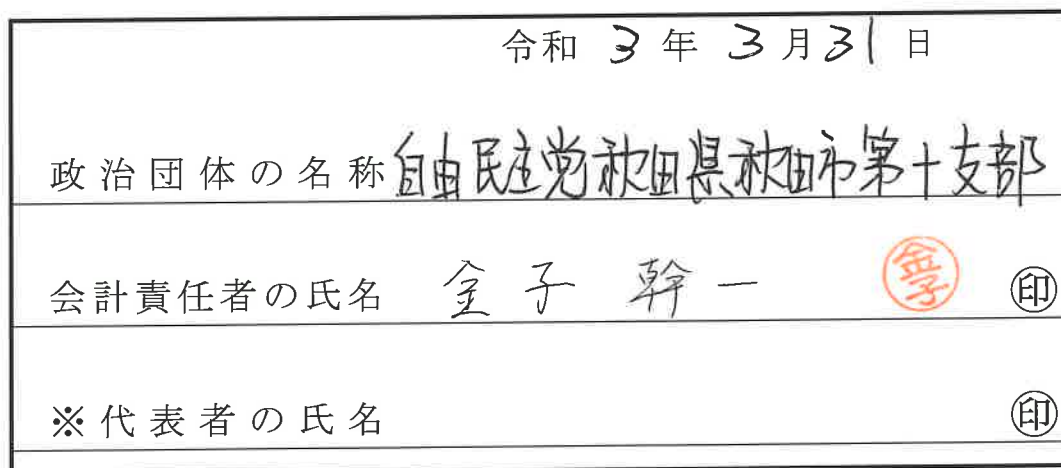 令和 3 年 3 月 31 日
政治団体の名称 自由民主党秋田県秋田市第十支部
会計責任者の氏名 金子 幹一 金子 ㊞
※代表者の氏名 ㊞